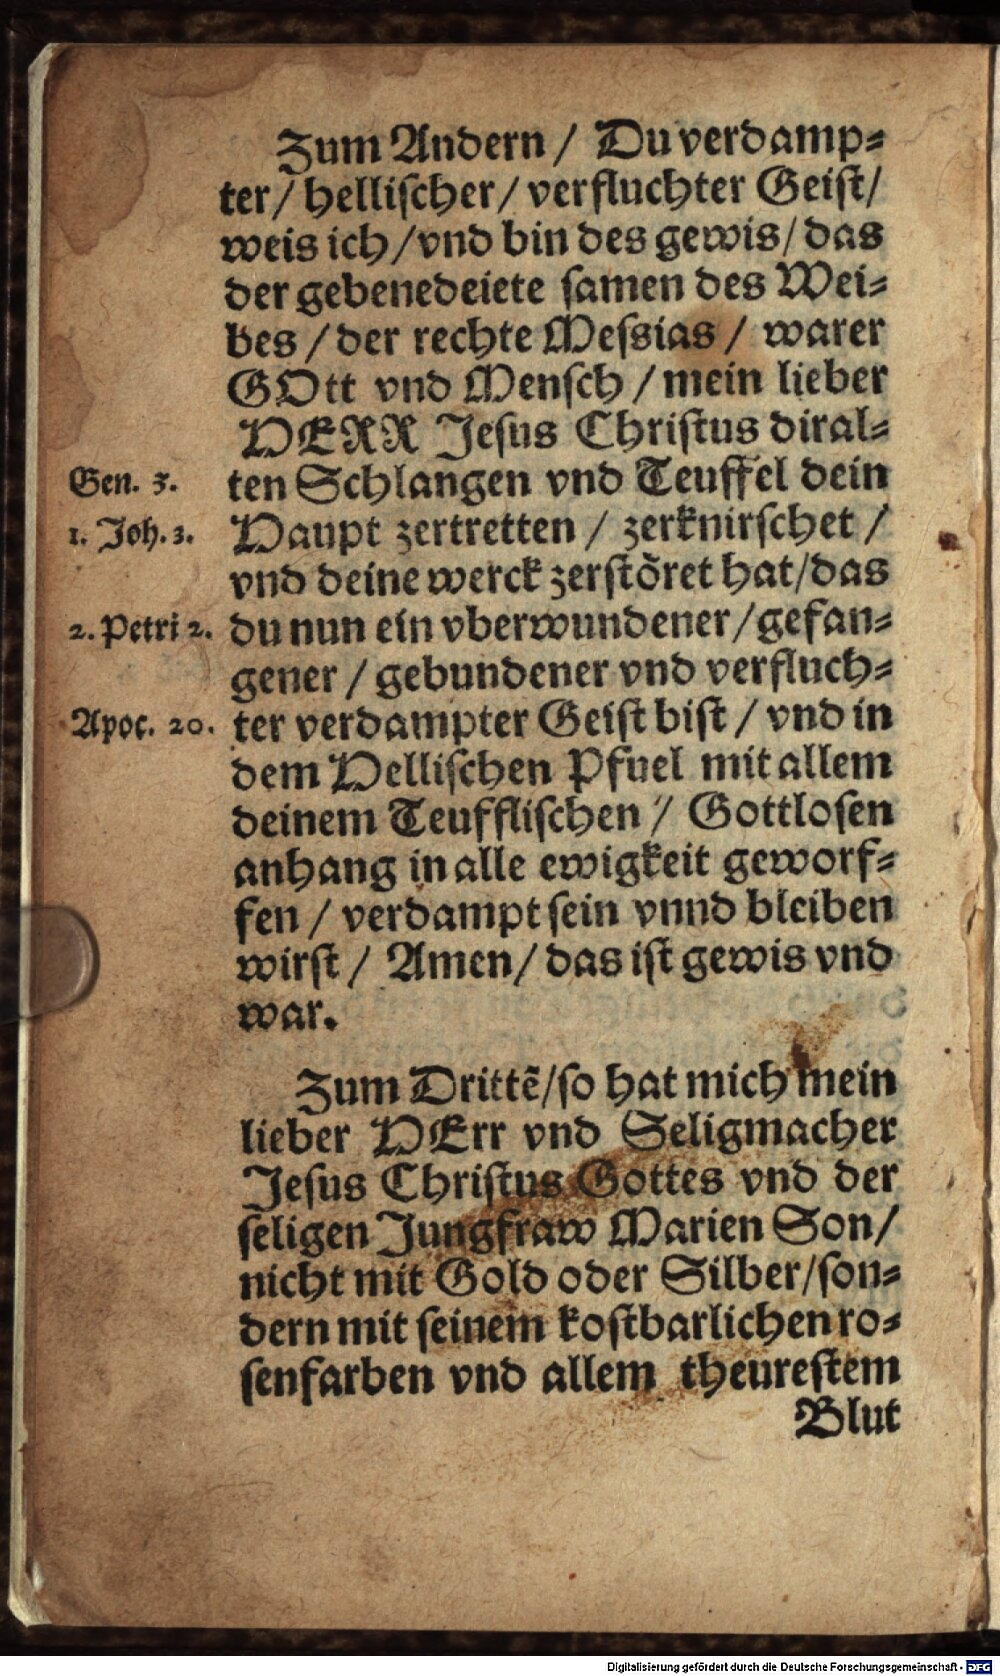 Zum Andern / Du verdamp⸗
ter / hellischer / verfluchter Geist /
weis ich / vnd bin des gewis / das
der gebenedeiete samen des Wei⸗
bes / der rechte Messias / warer
GOtt vnd Mensch / mein lieber
HERR Jesus Christus dir al⸗
Gen. 3. ten Schlangen vnd Teuffel dein
1. Joh. 3. Haupt zertretten / zerknirschet /
vnd deine werck zerstöret hat / das
2. Petri 2. du nun ein vberwundener / gefan⸗
gener / gebundener vnd verfluch⸗
Apoc. 20. ter verdampter Geist bist / vnd in
dem Hellischen Pfuel mit allem
deinem Teufflischen / Gottlosen
anhang in alle ewigkeit geworf⸗
fen / verdampt sein vnnd bleiben
wirst / Amen / das ist gewis vnd
war.
Zum Drittē / so hat mich mein
lieber HErr vnd Seligmacher
Jesus Christus Gottes vnd der
seligen Jungfraw Marien Son /
nicht mit Gold oder Silber / son⸗
dern mit seinem kostbarlichen ro⸗
senfarben vnd allem theurestem
Blut
Digitalisierung gefördert durch die Deutsche Forschungsgemeinschaft - DFG